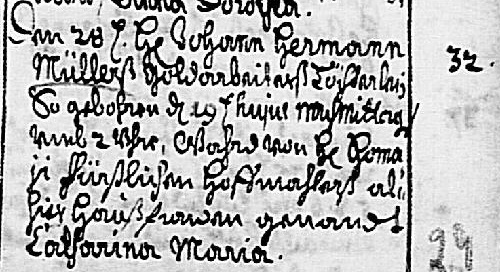 Den 28 f. H. Johann Hermann
Müllerß Goldarbeiterß Töchterlein
So gebohren d. 19 f. hujus nachmittag
umb 2 Uhr, Ward von H. Thoma
ji Fürstlichen Hoffmahlerß all
hier Haußfrawen genandt
Catharina Maria.
32.
29